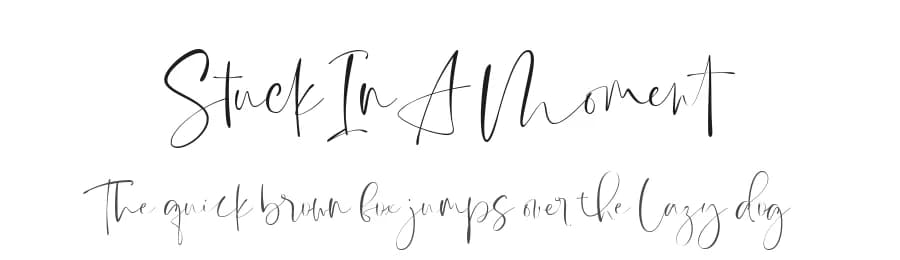 Stuck In A Moment
The quick brown fox jumps over the lazy dog